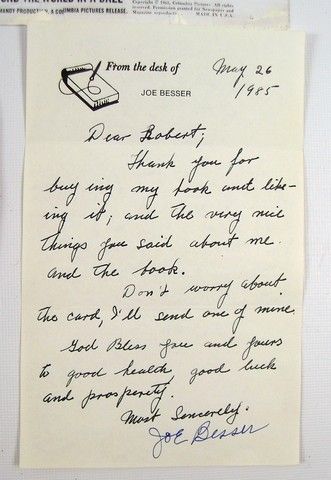 ROUND THE WORLD IN A DAZE
HANDY PRODUCTION, A COLUMBIA PICTURES RELEASE.
Copyright © 1963, Columbia Pictures
Magazine reproduction. MADE IN U.S.A.
From the desk of
JOE BESSER
May 26
1985
Dear Robert;
Thank you for
buying my book and like-
ing it; and the very nice
things you said about me.
and the book.
Don't worry about
the card, I'll send one of mine
God Bless you and yours
to good health, good luck
and prosperity.
Most Sincerely.
Joe Besser